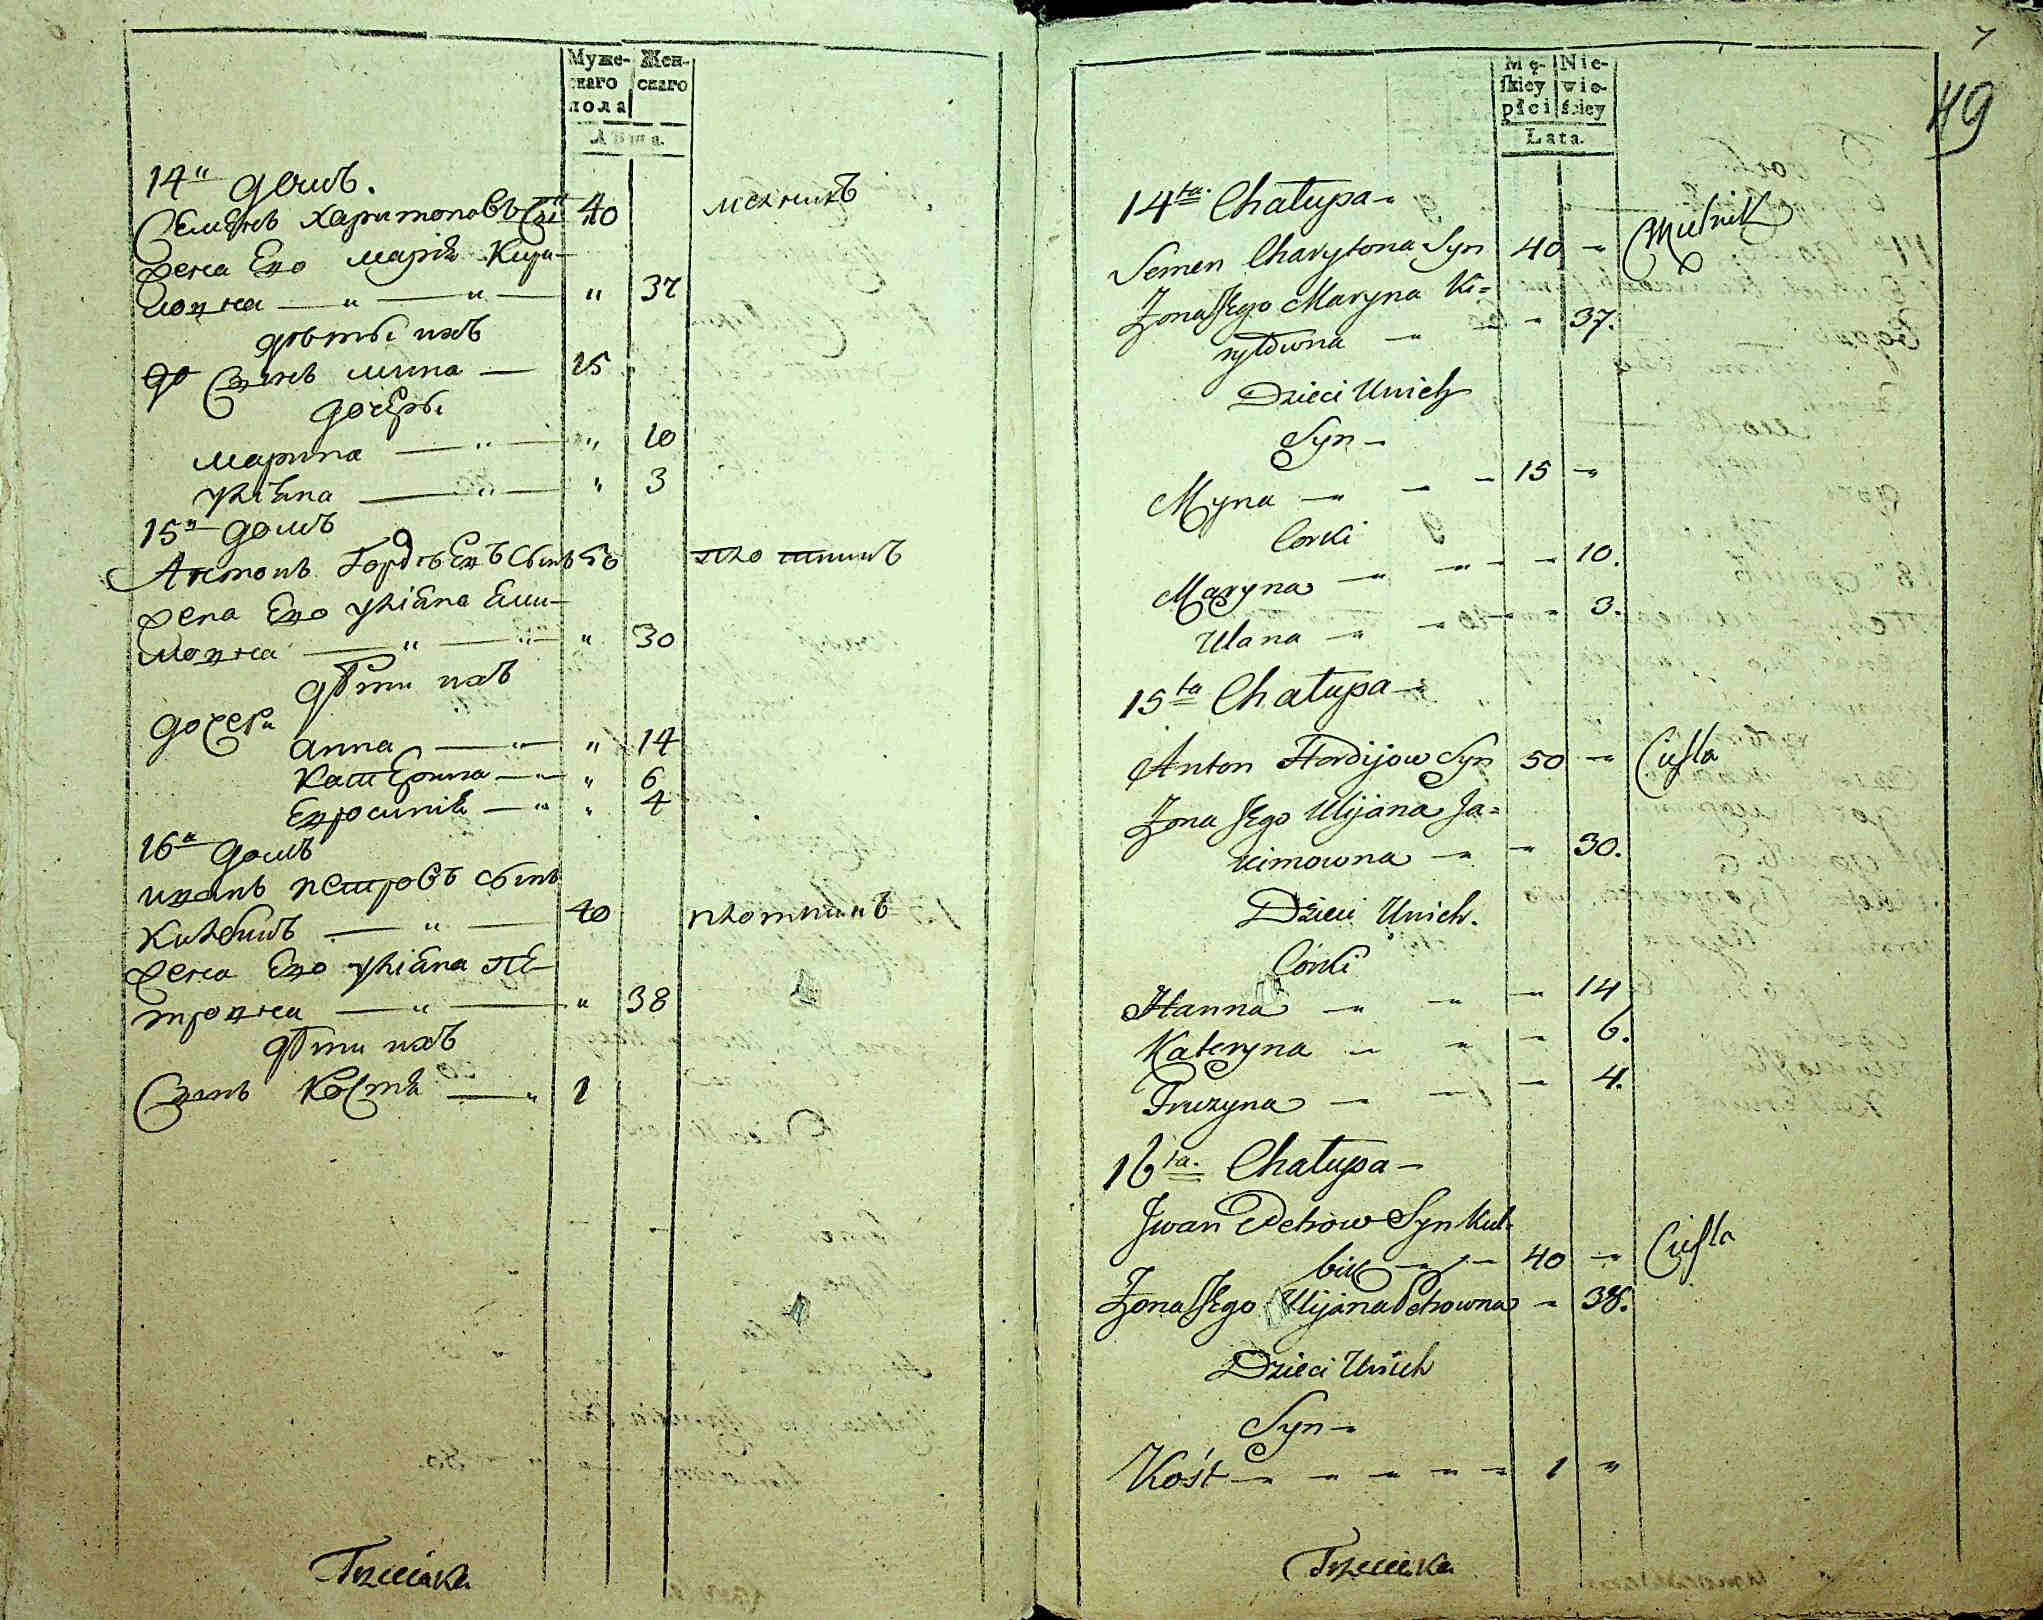 Муже-
скаго
пола
Жен-
скаго
Лѣта.
14й домъ.
Семенъ Харитоновъ Сынъ 40 мелникъ
Жена Его Мария Кири-
ловна — " — " — " 37
дѣти ихъ
Сынъ Мина — 15
дочери
Марина — " — " 10
Улияна — " — " 3
15й домъ
Антонъ Гордѣевъ Сынъ 50 плотникъ
Жена Его Улияна Еки-
мовна — " — " — " 30
дѣти ихъ
дочери
Анна — " — " 14
Катерина — " — " 6
Ефросиния — " " 4
16й домъ
Иванъ Петровъ Сынъ
Кулбикъ — " — 40 плотникъ
Жена Его Улияна Пе-
тровна — " — " 38
дѣти ихъ
Сынъ Костя — " 1
Trzeciaka
7
49
Mę-
skiey
płci
Nie-
wie-
ściey
Lata.
14ta Chałupa -
Semen Charytona Syn 40 - Mielnik
Żona Jego Maryna Ki=
ryłowna - - 37.
Dzieci Unich
Syn -
Myna - - - 15 -
Corki
Maryna - - - - 10.
Ulana - - - - 3.
15ta Chałupa -
Anton Hordijow Syn 50 - Ciesla
Żona Jego Ulijana Ja=
kimowna - - 30.
Dzieci Unich.
Córki
Hanna - - - 14
Kateryna - - - 6.
Fruzyna - - - 4.
16ta. Chałupa -
Jwan Petrow Syn Kul-
bik - - 40 - Ciesla
Żona Jego Ulijana Petrowna - 38.
Dzieci Unich
Syn -
Kość - - - - - 1 "
Trzeciaka